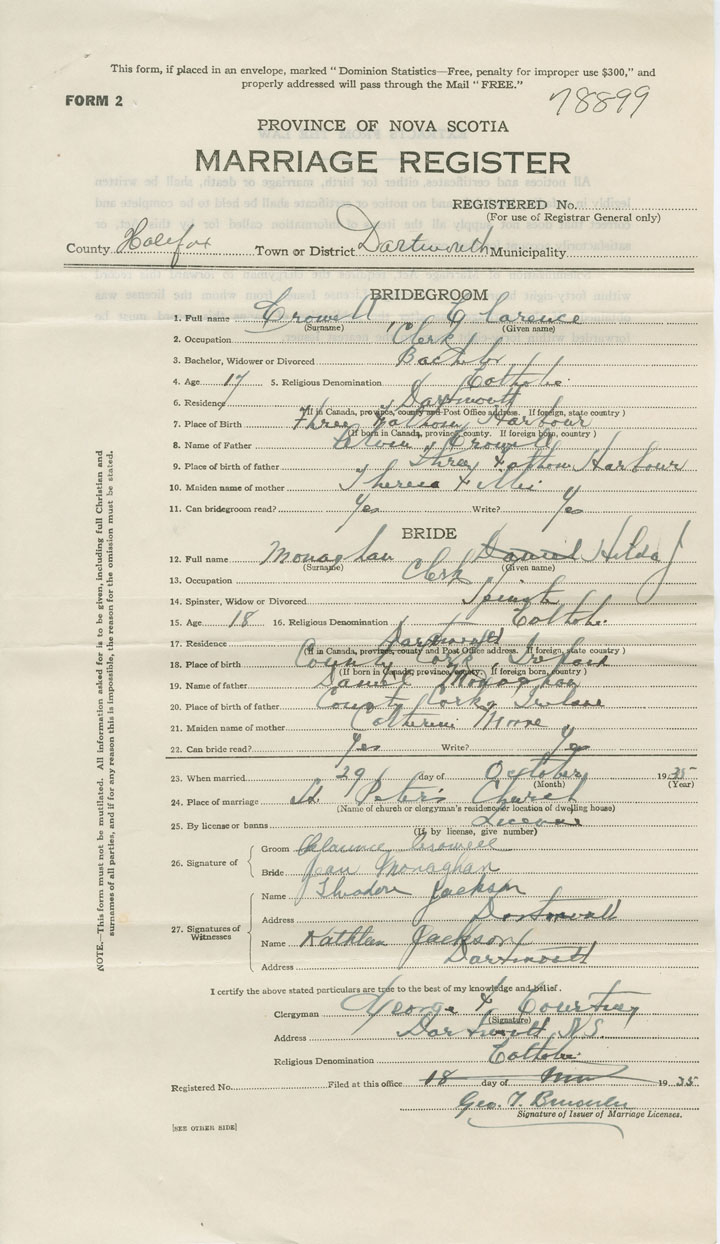 This form, if placed in an envelope, marked “ Dominion Statistics—Free, penalty for improper use $300,” and
properly addressed will pass through the Mail “ FREE.”
FORM 2
78899
PROVINCE OF NOVA SCOTIA
MARRIAGE REGISTER
REGISTERED No.
(For use of Registrar General only)
County Halifax Town or District Dartmouth Municipality
BRIDEGROOM
1. Full name Crowell Clarence
(Surname) (Given name)
2. Occupation Clerk
3. Bachelor, Widower or Divorced Bachelor
4. Age 17 5. Religious Denomination Catholic
6. Residence Dartmouth
(If in Canada, province, county and Post Office address. If foreign, state country )
7. Place of Birth Three Fathom Harbour
(If born in Canada, province, county. If foreign born, country )
8. Name of Father Crowell
9. Place of birth of father Three Fathom Harbour
10. Maiden name of mother Theresa
11. Can bridegroom read? Yes Write? Yes
BRIDE
12. Full name Monaghan Daniel Hilda J
(Surname) (Given name)
13. Occupation Clerk
14. Spinster, Widow or Divorced Spinster
15. Age 18 16. Religious Denomination Catholic
17. Residence Dartmouth
(If in Canada, province, county and Post Office address. If foreign, state country )
18. Place of birth County Cork, Ireland
(If born in Canada, province, county. If foreign born, country )
19. Name of father Daniel Monaghan
20. Place of birth of father County Cork, Ireland
21. Maiden name of mother Catherine Moore
22. Can bride read? Yes Write? Yes
23. When married 29 day of October 1935
(Month) (Year)
24. Place of marriage St. Peter's Church
(Name of church or clergyman's residence or location of dwelling house)
25. By license or banns License
(If by license, give number)
26. Signature of
Groom Clarence Crowell
Bride Jean Monaghan
27. Signatures of Witnesses
Name Theodore Jackson
Address Dartmouth
Name Kathleen Jackson
Address Dartmouth
I certify the above stated particulars are true to the best of my knowledge and belief.
Clergyman George Courtney
(Signature)
Address Dartmouth, N.S.
Religious Denomination Catholic
Registered No. Filed at this office 18 day of Nov 1935
Geo. T.
Signature of Issuer of Marriage Licenses.
[SEE OTHER SIDE]
NOTE.—This form must not be mutilated. All information asked for is to be given, including full Christian and
surnames of all parties, and if for any reason this is impossible, the reason for the omission must be stated.